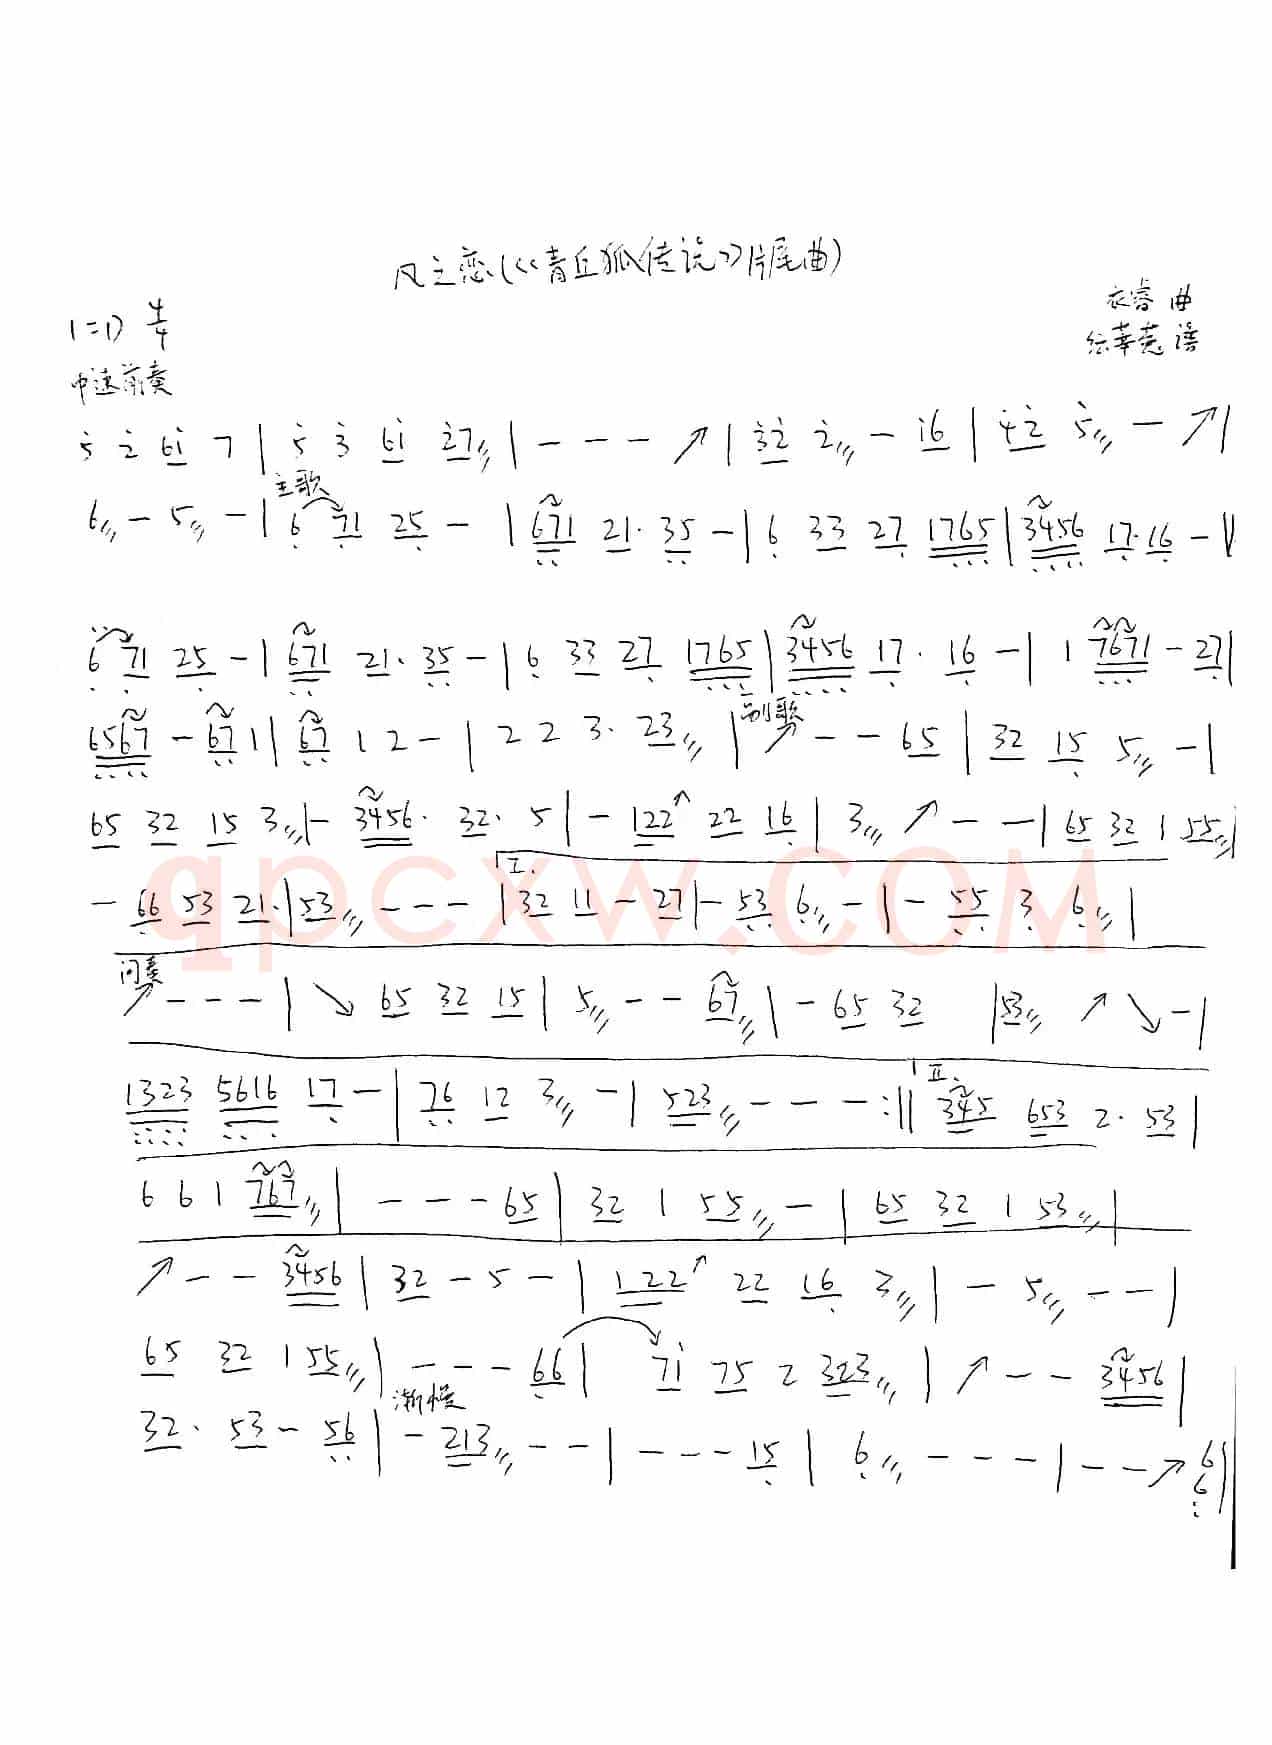 风之恋(《青丘狐传说》片尾曲)
衣睿 曲
1=D 4/4
谱
中速前奏
5 2 61 7 | 5 3 61 27 | - - - ↗ | 32 2 - 16 | 42 5 - ↗ |
主歌
6 - 5 - | 6 71 25 - | 671 21· 35 - | 6 33 27 1765 | 3456 17·16 - |
6 71 25 - | 671 21· 35 - | 6 33 27 1765 | 3456 17· 16 - | 1 7671 - 27 |
副歌
6567 - 67 1 | 67 1 2 - | 2 2 3· 23 | ↗ - - 65 | 32 15 5 - |
65 32 15 3 | - 3456· 32· 5 | - 122 22 16 | 3 ↗ - - | 65 32 1 55 |
I.
- 66 53 21· | 53 - - - | 32 11 - 27 | - 53 6 - | - 55 3 6 |
间奏
↗ - - - | ↘ 65 32 15 | 5 - - 67 | - 65 32 | 53 ↗ ↘ - |
II.
1323 5616 17 - | 76 12 3 - | 523 - - - :|| 345 653 2· 53 |
6 6 1 767 | - - - 65 | 32 1 55 - | 65 32 1 53 |
↗ - - 3456 | 32 - 5 - | 122 22 16 3 | - 5 - - |
65 32 1 55 | - - - 66 | 71 75 2 323 | ↗ - - 3456 |
渐慢
32· 53 - 56 | - 213 - - | - - - 15 | 6 - - - | - - ↗ 6 |
6
qpcxw.COM